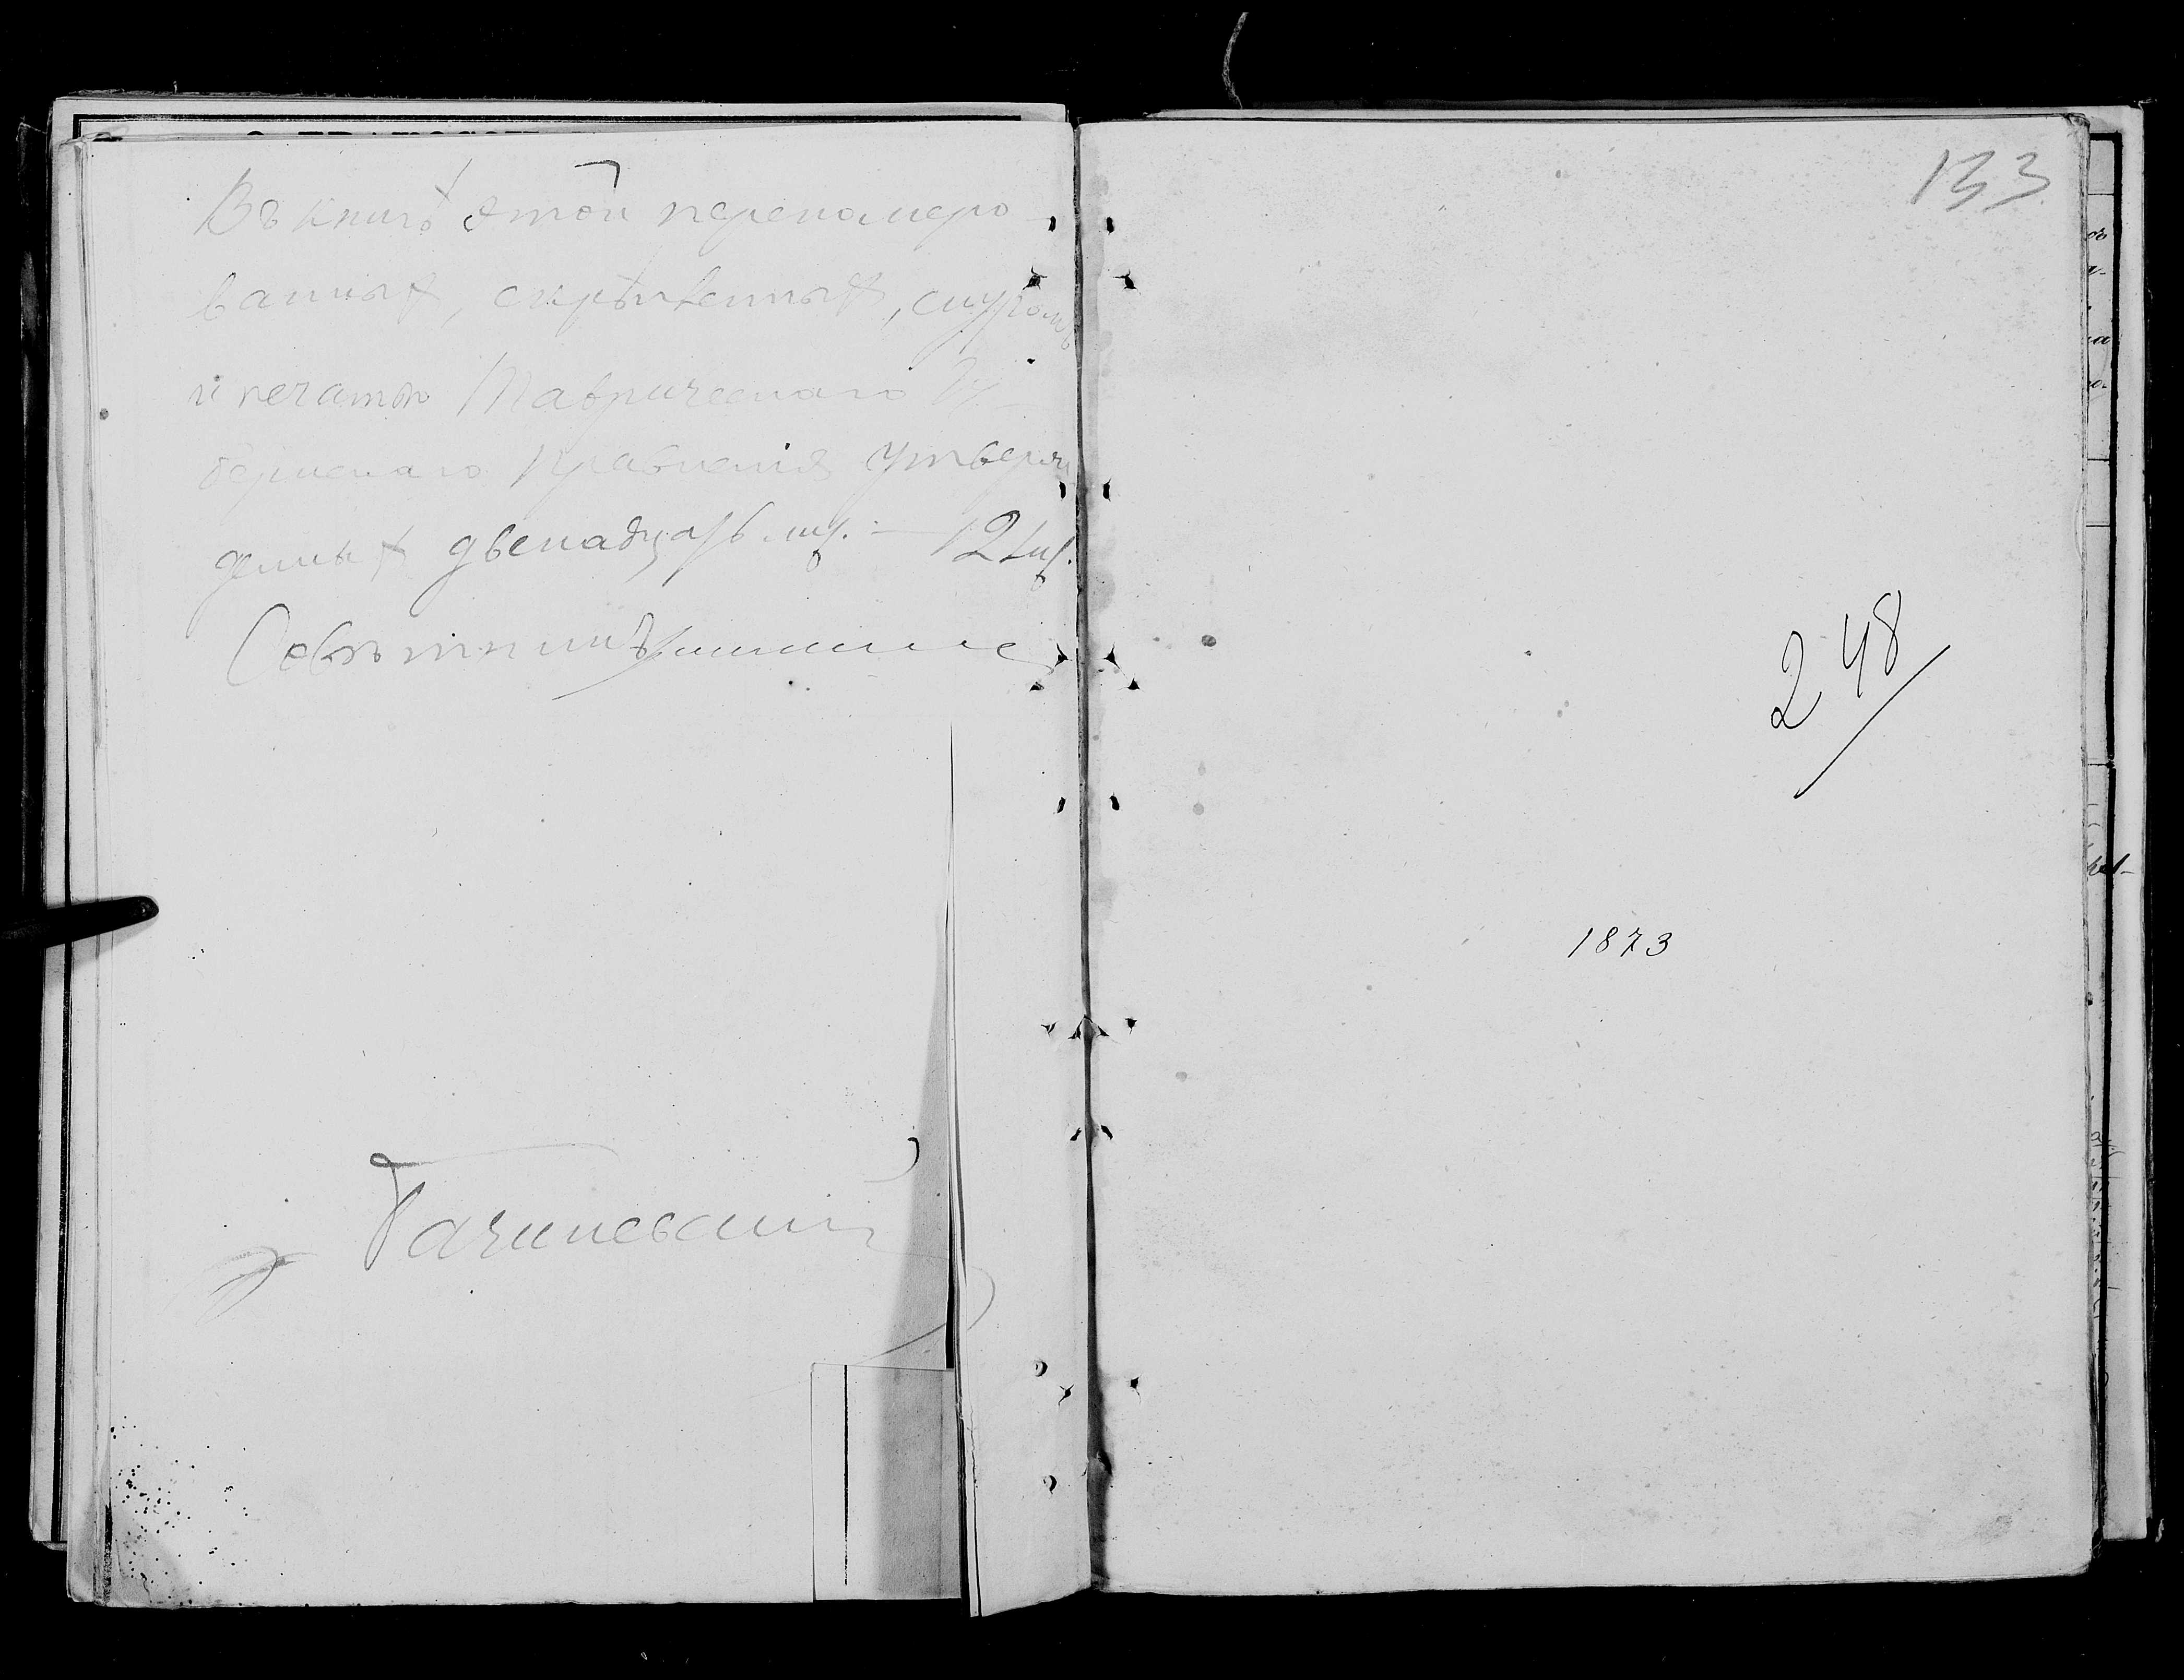 Въ книгѣ этой перенумеро-
ванныхъ, скрѣпленныхъ, шнуромъ
и печатью Таврическаго Гу-
бернскаго Правленія утверж
денныхъ двенадцать лис. — 12 лис.
Совѣтникъ
133
248
1873